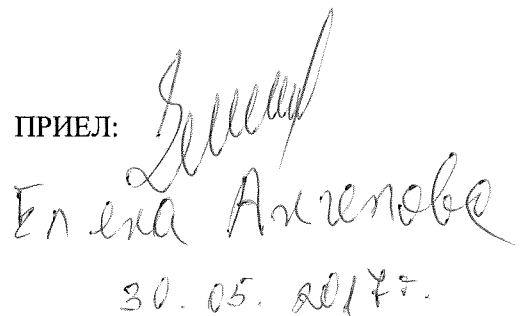 ПРИЕЛ:
Елена Ангелова
30.05.2017г.